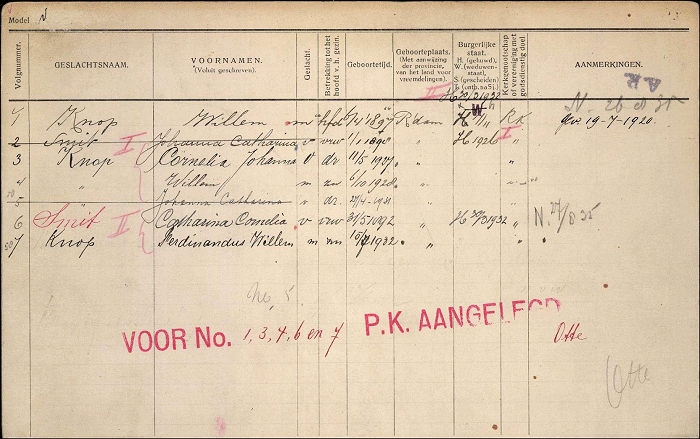 Model N
Volgnummer.
GESLACHTSNAAM.
VOORNAMEN.
(Voluit geschreven).
Geslacht.
Betrekking tot het hoofd v. h. gezin.
Geboortetijd.
Geboorteplaats.
(Met aanwijzing der provincie, van het land voor vreemdelingen).
Burgerlijke staat.
H. (gehuwd), W. (weduwenstaat), S. (gescheiden)
Kerkgenootschap of vereeniging met godsdienstig doel
AANMERKINGEN.
A.K.
1 Knop Willem m hfd R'dam W RK 19-7-1920.
2 Smit I Johanna Catharina v vrw H 1926 I
3 Knop Cornelia Johanna v dr 11/5 1927 "
4 " Willem m zn 6/10 1928 "
5 Johanna Catharina v dr. "
6 Smit II Catharina Cornelia v vrw " H 30/3 1932 " N. 27/8 35
7 Knop Ferdinandus Willem m zn 1932. " "
No. 5
VOOR No. 1, 3, 4, 6 en 7 P.K. AANGELEGD
Otte
Otte